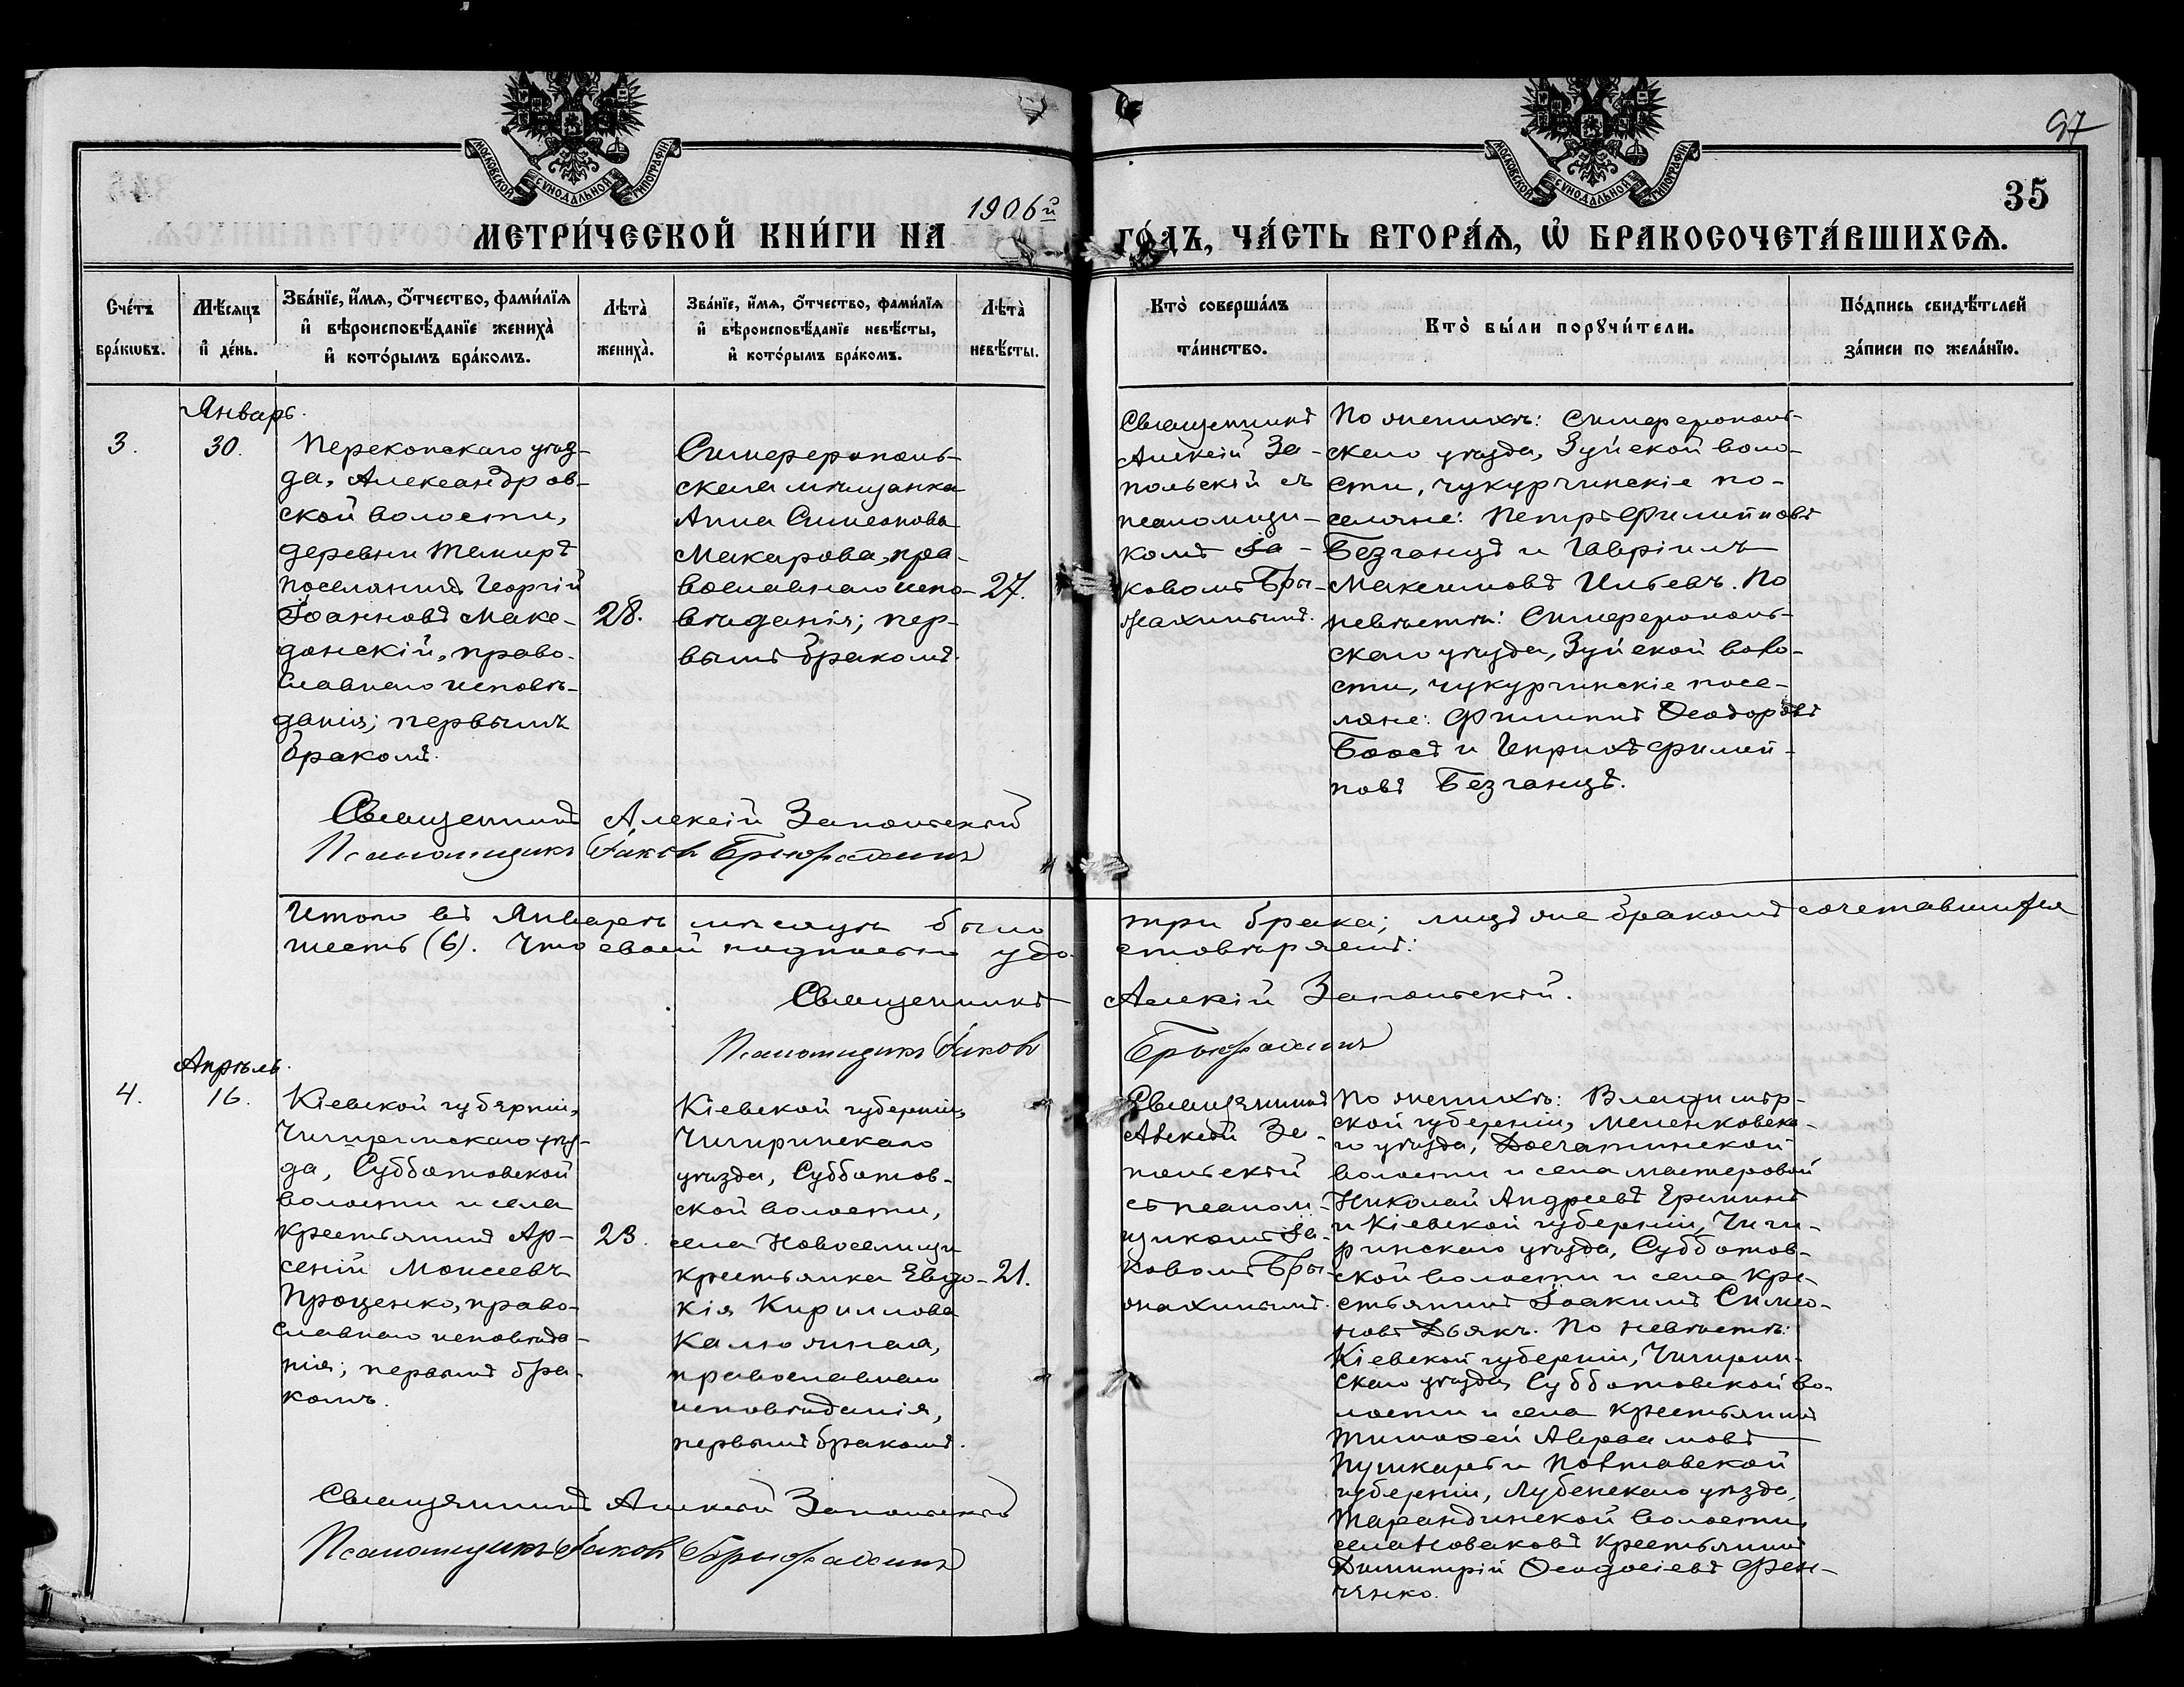 97
35
МОСКОВСКОЙ СѴНОДАЛЬНОЙ ТИПОГРАФІИ
МОСКОВСКОЙ СѴНОДАЛЬНОЙ ТИПОГРАФІИ
МЕТРИ́ЧЕСКОЙ КНИ́ГИ НА 1906й ГО́ДЪ, ЧА́СТЬ ВТОРА́Ѧ, Ѡ БРАКОСОЧЕТА́ВШИХСѦ.
Сче́тъ
бра́кѡвъ.
Мѣ́сяцъ
и де́нь.
Зва́нїе, и́мя, о́тчество, фами́лїя
и вѣроисповѣ́данїе жениха̀
и кото́рымъ бра́комъ.
Лѣта̀
жениха̀.
Зва́нїе, и́мя, о́тчество, фами́лїя
и вѣроисповѣ́данїе невѣ́сты,
и кото́рымъ бра́комъ.
Лѣта̀
невѣ́сты.
Кто̀ соверша́лъ
та́инство.
Кто̀ бы́ли порꙋчи́тели.
По́дпись свидѣ́телей
за́писи по жела́нїю.
Январь.
3.
30.
Перекопскаго уѣз-
да, Александров-
ской волости,
деревни Темиръ
поселянинъ Георгій
Іоанновъ Маке-
донскій, право-
славнаго исповѣ-
данія; первымъ
бракомъ.
28.
Симферополь-
ская мѣщанка
Анна Симеонова
Макарова, пра-
вославнаго испо-
вѣданія; пер-
вымъ бракомъ.
27.
Священникъ
Алексій За-
польскій съ
псаломщи-
комъ Іа-
ковомъ Брю-
жахинымъ.
По женихѣ: Симферополь-
скаго уѣзда, Зуйской воло-
сти, чукурчинскіе по-
селяне: Петръ Филипповъ
Безганцъ и Гавріилъ
Максимовъ Ильевъ. По
невѣстѣ: Симферополь-
скаго уѣзда, Зуйской воло-
сти, чукурчинскіе посе-
ляне: Филиппъ Ѳеодоровъ
Боосъ и Генрихъ Филип-
повъ Безганцъ.
Священникъ Алексій Запольскій
Псаломщикъ Іаковъ
Итого въ Январѣ мѣсяцѣ было три брака; лицъ же бракомъ сочетавшихся
шесть (6). Что своей подписью удо-стовѣряемъ:
Священникъ Алексій Запольскій.
Псаломщикъ Іаковъ
Апрѣль.
4.
16.
Кіевской губерніи,
Чигиринскаго уѣз-
да, Субботовской
волости и села
крестьянинъ Ар-
сеній Моисеевъ
Проценко, право-
славнаго исповѣда-
нія; первымъ бра-
комъ.
23.
Кіевской губерніи,
Чигиринскаго
уѣзда, Субботов-
ской волости,
села Новоселицы
крестьянка Евдо-
кія Кириллова
Калюжная,
православнаго
исповѣданія,
первымъ бракомъ.
21.
Священникъ
Алексій За-
польскій
съ псалом-
щикомъ Іа-
ковомъ Брю-
жахинымъ.
По женихѣ: Владимір-
ской губерніи, Меленковска-
го уѣзда, Досчатинской
волости и села мастеровой
Николай Андреевъ Ереминъ
и Кіевской губерніи, Чиги-
ринскаго уѣзда, Субботов-
ской волости и села кре-
стьянинъ Іоакимъ Симео-
новъ Дьякъ. По невѣстѣ:
Кіевской губерніи, Чигирин-
скаго уѣзда, Субботовской во-
лости и села крестьянинъ
Тимоѳей Авраамовъ
Пушкарь и Полтавской
губерніи, Лубенскаго уѣзда,
Тарандинской волости,
села Новаковъ крестьянинъ
Димитрій Ѳеодосіевъ Фен-
ченко.
Священникъ Алексій Запольскій
Псаломщикъ Іаковъ